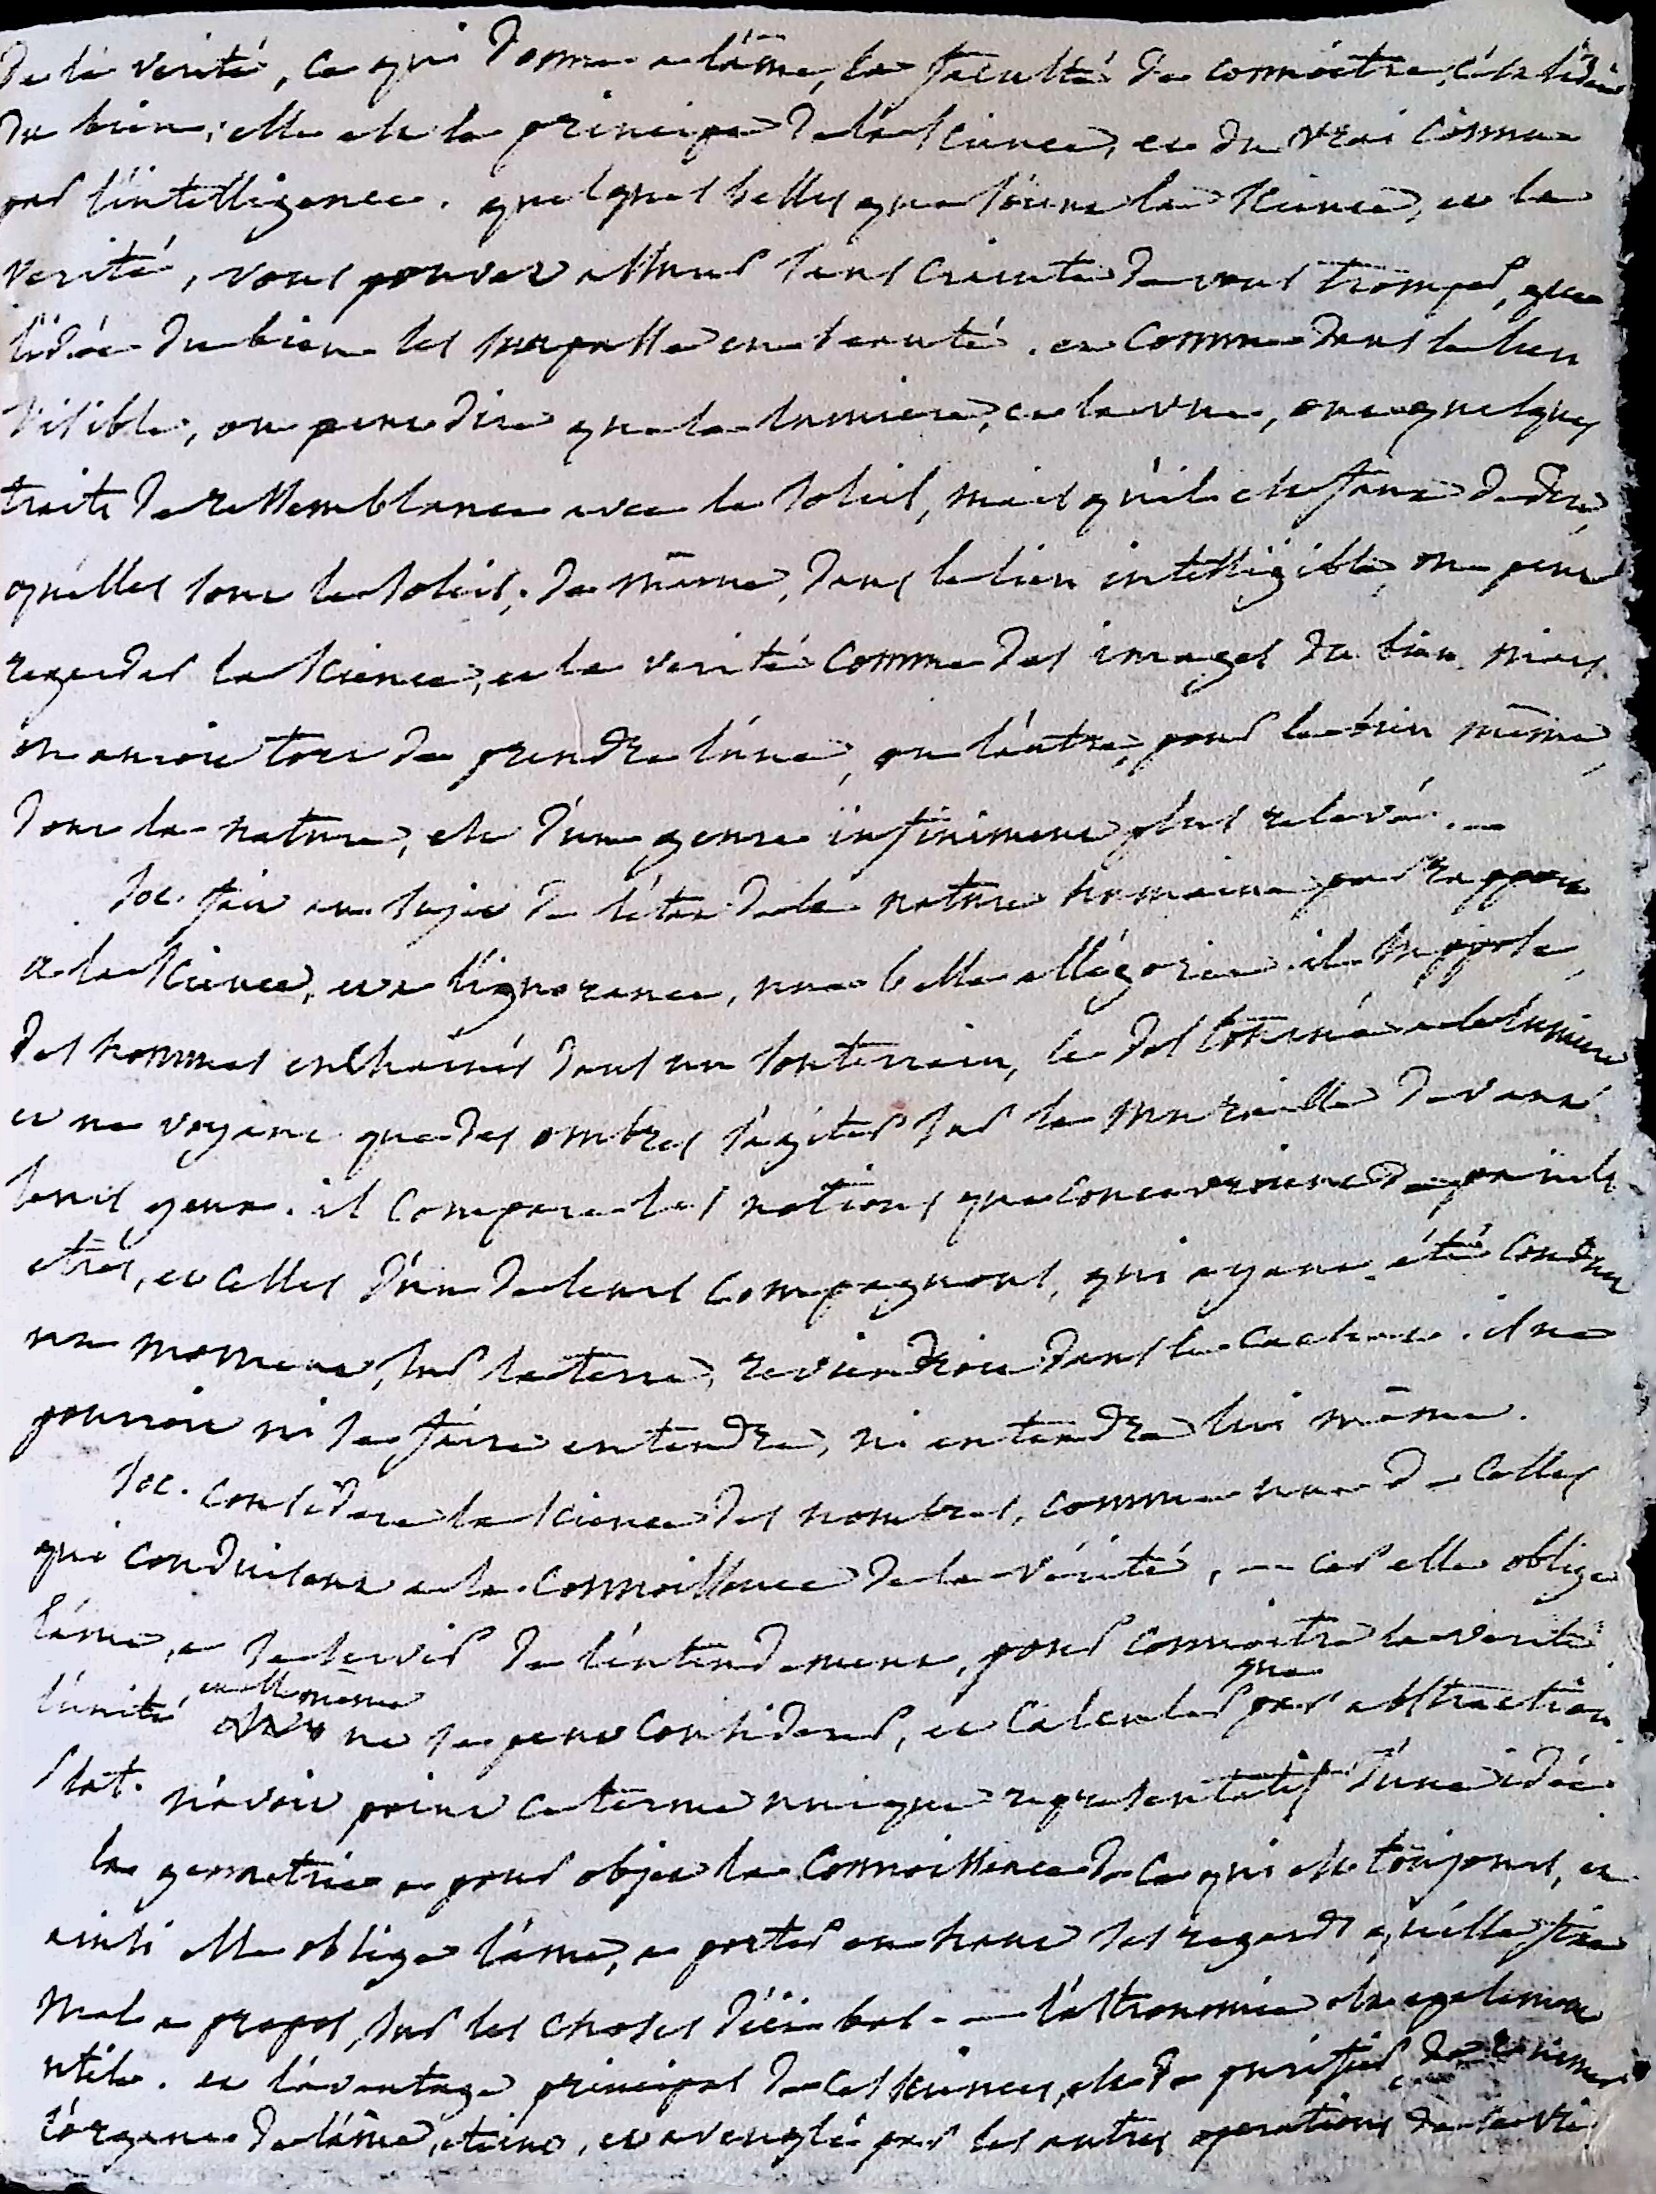 de la verité, ce qui donne a l'ame, la faculté de connoitre, c'est l'idée
du bien; elle est le principe de la science, et du vrai connu
par l'intelligence. quelques belles que soient la science, et la
verité, vous pouvez assurer sans crainte de vous tromper, que
l'idée du bien les surpasse en beauté. et comme dans le lieu
visible, on peut dire que la lumiere, et la vue, ont quelques
traits de ressemblance avec le soleil, mais qu'il est faux de dire,
qu'elles sont le soleil; de même, dans le lieu intelligible, on peut
regarder la science, et la verité comme des images du bien mais
on auroit tort de prendre l'une, ou l'autre, pour le bien même,
dont la nature, est d'un genre infiniment plus relevé. —
soc. fait au sujet de l'état de la nature humaine par rapport
a la science, et a l'ignorance, une belle allégorie. il suppose
des hommes enchainés dans un souterrain, le dos tourné a la lumiere
et ne voyant que des ombres s'agiter sur la muraille devant
leurs yeux. il compare les notions que concevroient de pareils
etres, et celles d'un de leurs compagnons, qui ayant été conduit
un moment, sur la terre, reviendroit dans le cachot. il ne
pourroit ni se faire entendre, ni entendre lui même.
soc. considere la science des nombres, comme une de celles
qui conduisent a la connoissance de la vérité, — car elle oblige
l'ame, a se servir de l'entendement, pour connoitre la verité
l'unité en elle même ne se peut considerer, et calculer que par abstraction
Plat. n'avoit point ce terme unique representatif d'une idée
la geometrie a pour objet la connoissance de ce qui est toujours, et
ainsi elle oblige l'ame, a porter en haut ses regards qu'elle fixe
mal a propos, sur les choses d'ici bas. — l'astronomie est egalement
utile. et l'avantage principal de ces sciences, est de purifier, de ranimer
l'organe de l'ame, eteint, et aveuglé par les autres operations de la vie